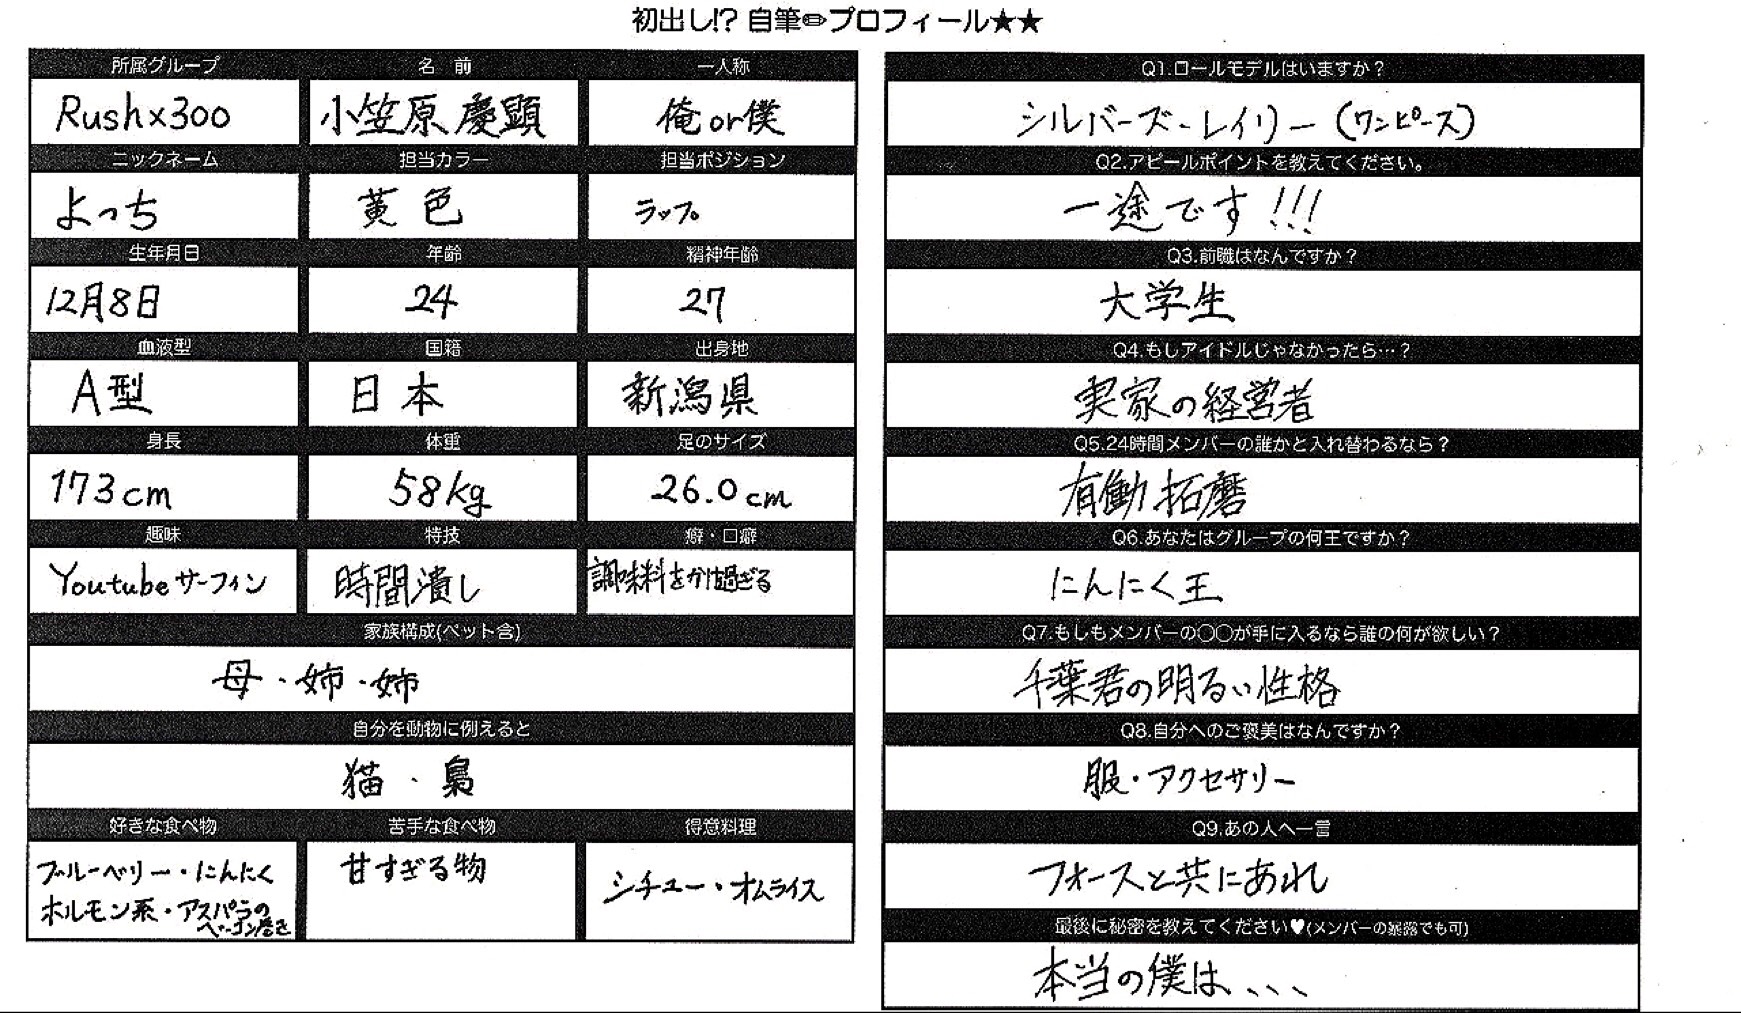 初出し!? 自筆✏プロフィール★★
所属グループ 名 前 一人称
Rush×300 小笠原 慶顕 俺or僕
ニックネーム 担当カラー 担当ポジション
よっち 黄色 ラップ
生年月日 年齢 精神年齢
12月8日 24 27
血液型 国籍 出身地
A型 日本 新潟県
身長 体重 足のサイズ
173cm 58kg 26.0cm
趣味 特技 癖・口癖
Youtubeサーフィン 時間潰し 調味料をかけ過ぎる
家族構成(ペット含)
母・姉・姉
自分を動物に例えると
猫・梟
好きな食べ物 苦手な食べ物 得意料理
ブルーベリー・にんにく 甘すぎる物 シチュー・オムライス
ホルモン系・アスパラの
ベーコン巻き
Q1.ロールモデルはいますか？
シルバーズ・レイリー（ワンピース）
Q2.アピールポイントを教えてください。
一途です!!!
Q3.前職はなんですか？
大学生
Q4.もしアイドルじゃなかったら…？
実家の経営者
Q5.24時間メンバーの誰かと入れ替わるなら？
有働 拓磨
Q6.あなたはグループの何王ですか？
にんにく王
Q7.もしもメンバーの〇〇が手に入るなら誰の何が欲しい？
千葉君の明るい性格
Q8.自分へのご褒美はなんですか？
服・アクセサリー
Q9.あの人へ一言
フォースと共にあれ
最後に秘密を教えてください♥(メンバーの暴露でも可)
本当の僕は、、、